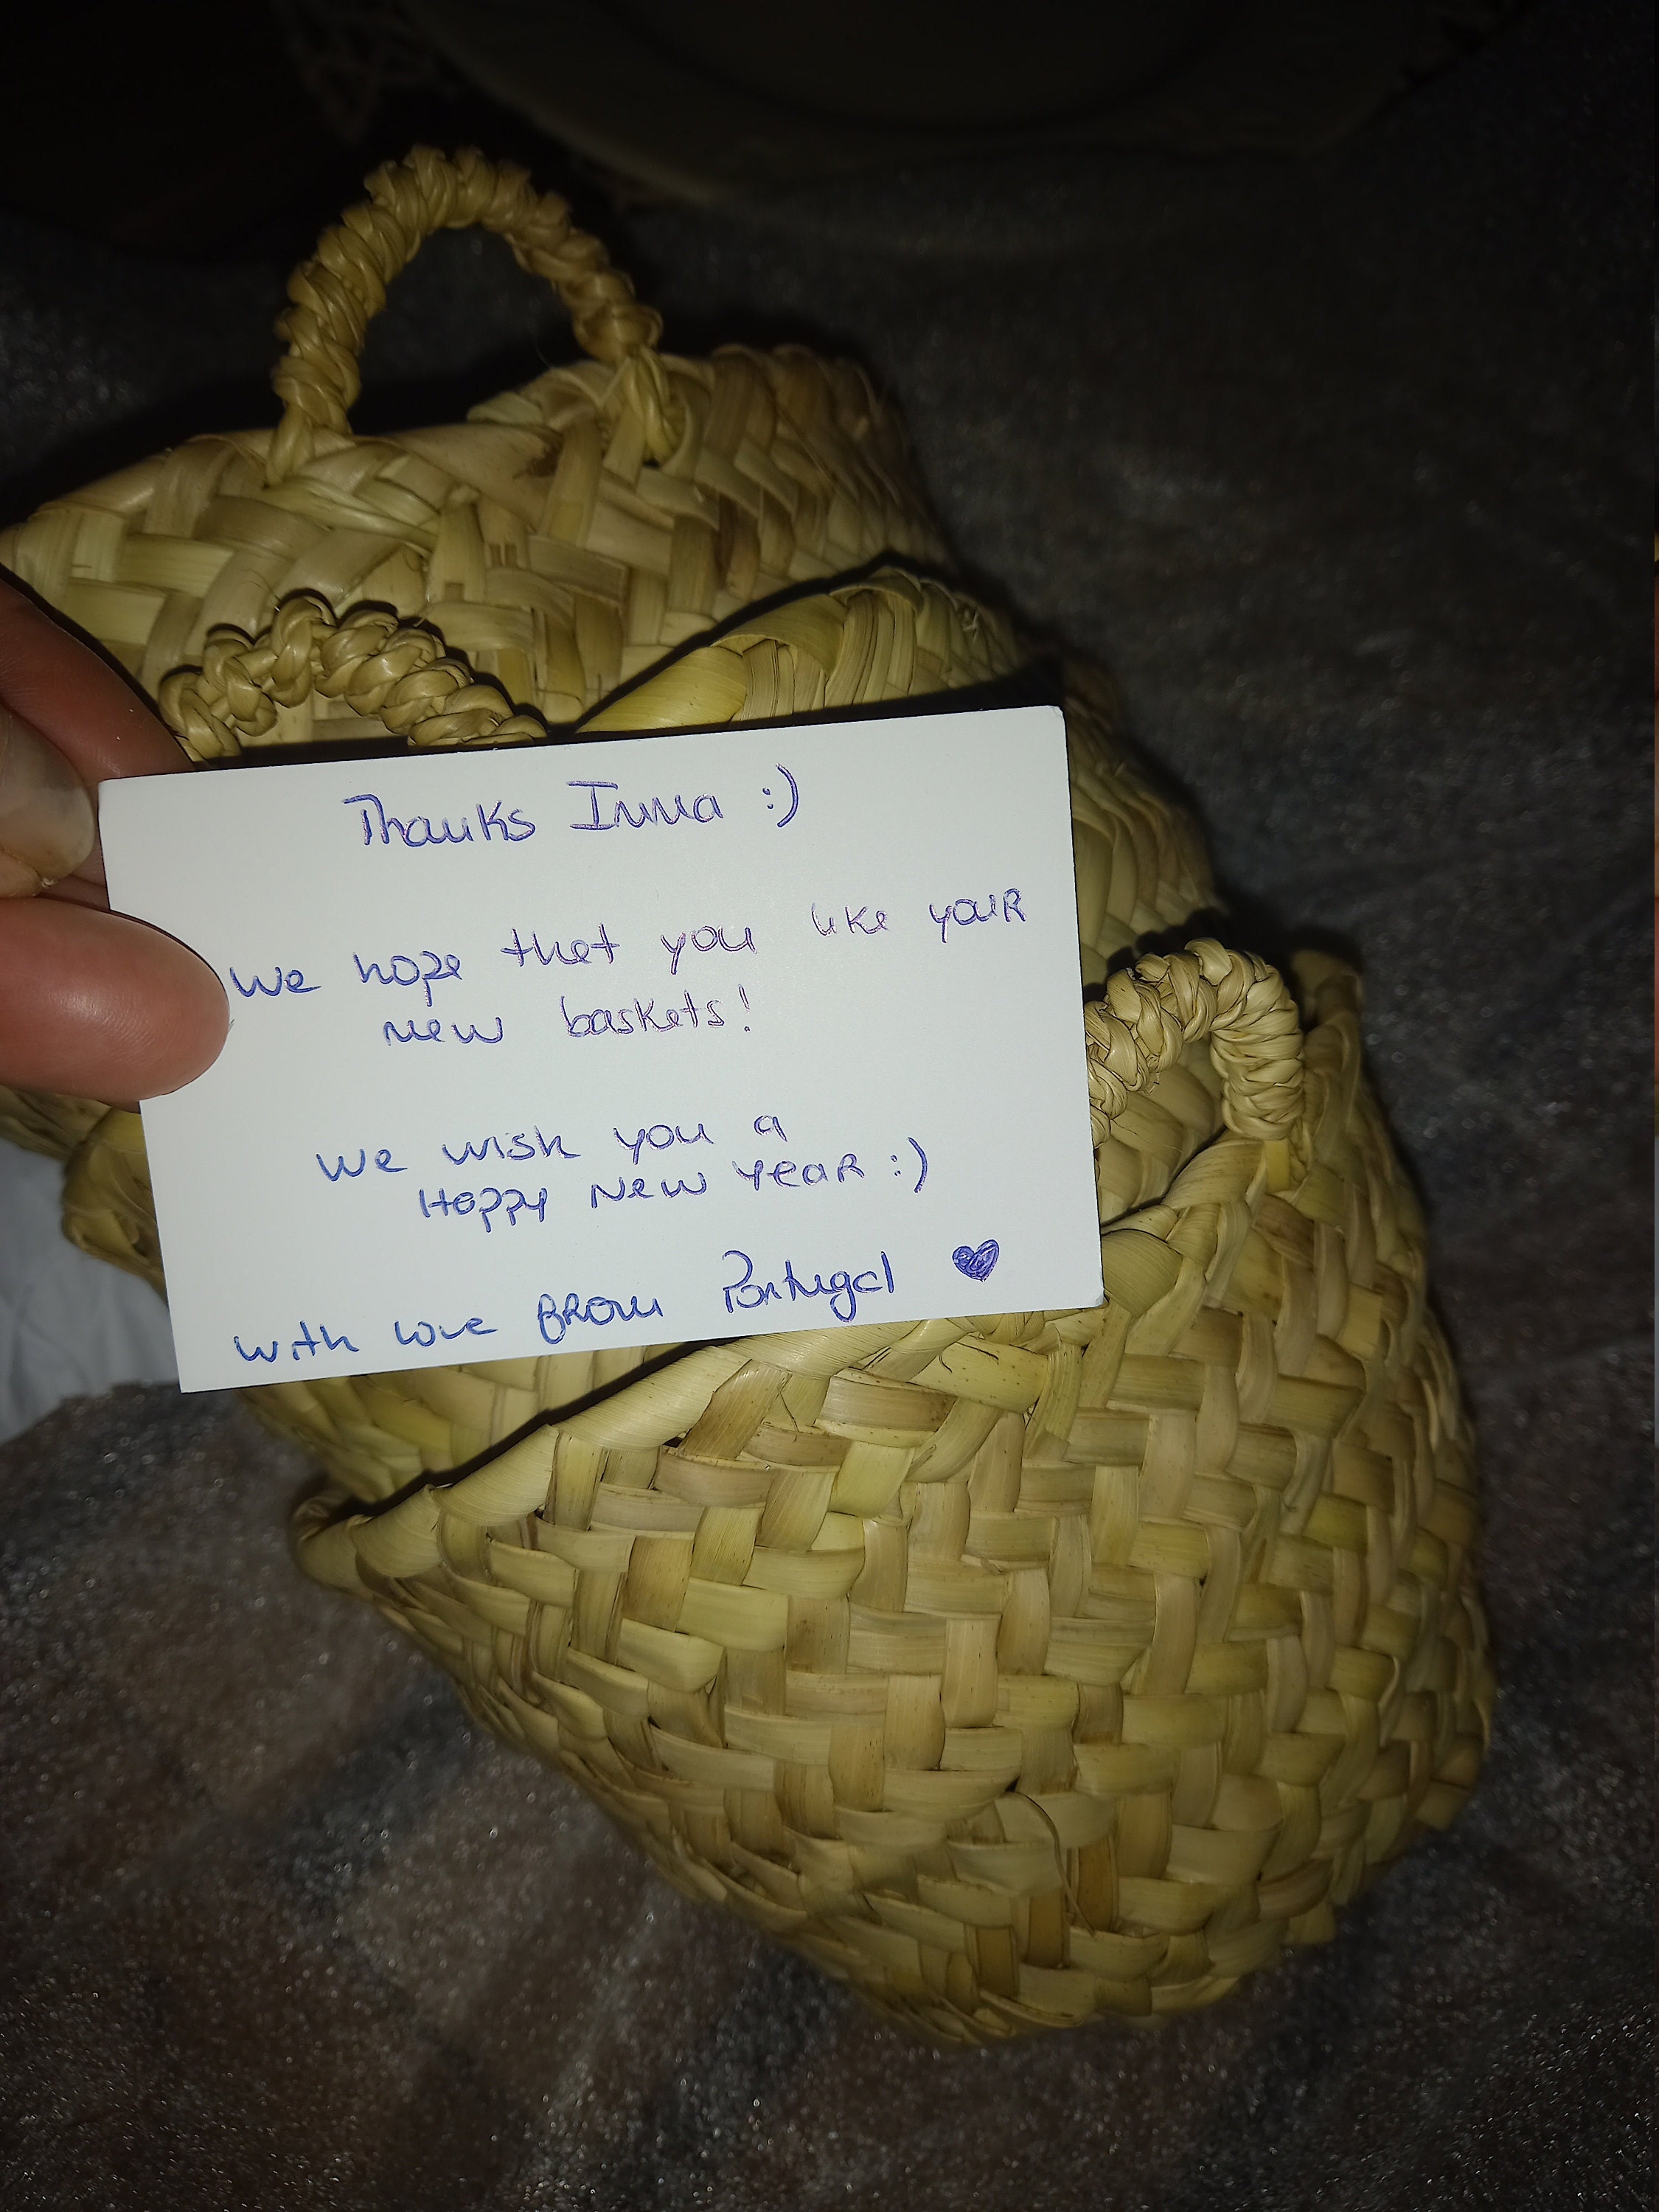 Thanks Inna :)
We hope that you like your
new baskets!
We wish you a
Happy New Year :)
with love from Portugal ♥